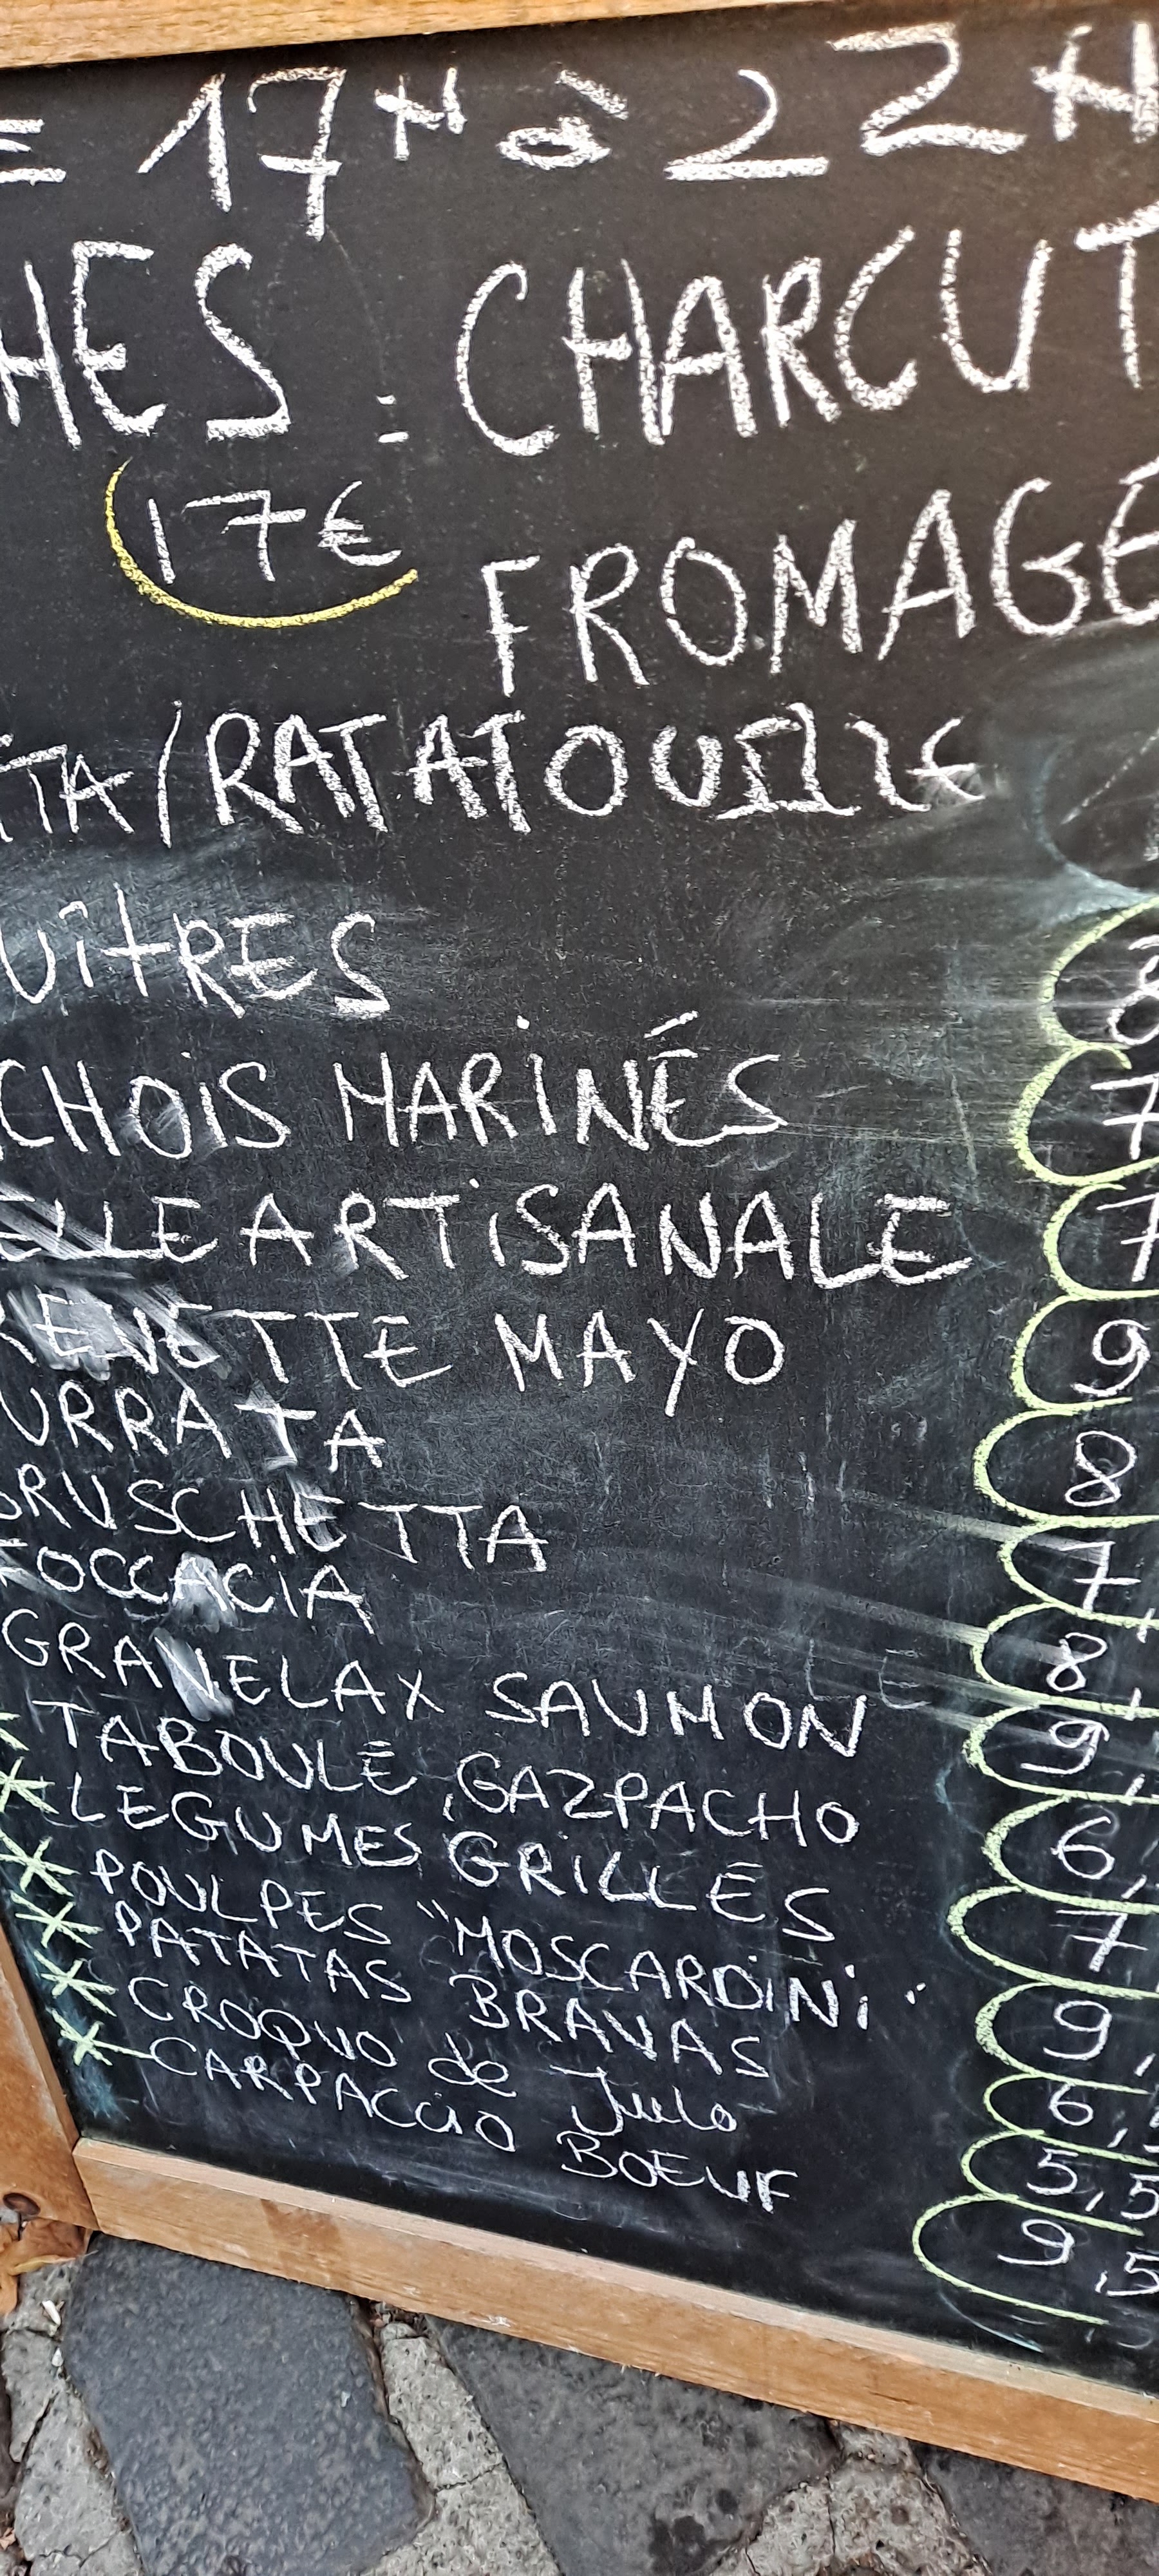 = 17H à 22H
HES : CHARCUT
17€ FROMAGE
ITA / RATATOUILLE
UÎTRES 8
CHOIS MARINÉS 7
ELLE ARTISANALE 7
RENETTE MAYO 9
URRATA 8
BRUSCHETTA 7
FOCCACIA 8
GRAVELAX SAUMON 9,
* TABOULÉ, GAZPACHO 6,
* LEGUMES GRILLES 7
* POULPES "MOSCARDINI" 9,
* PATATAS BRAVAS 6,5
* CROQUO de Julo 5,5
* CARPACCIO BOEUF 9,5